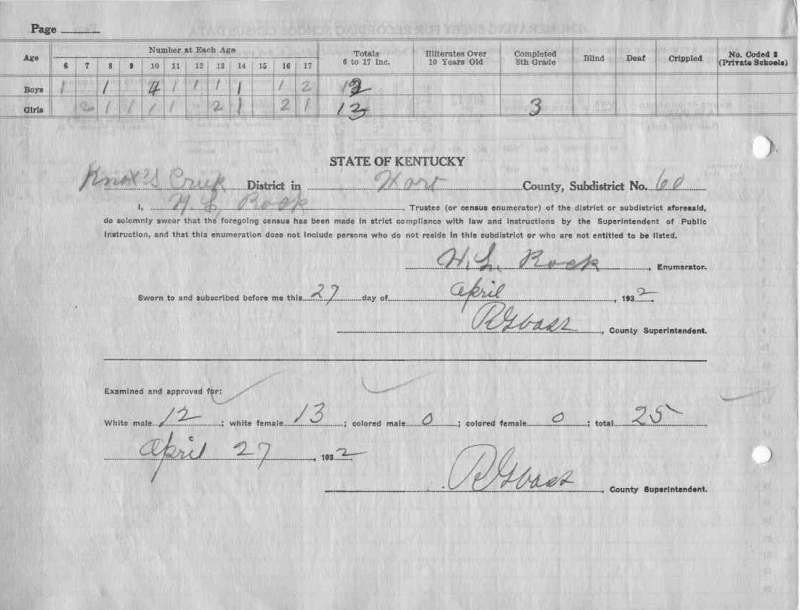 Page
Age Number at Each Age Totals 6 to 17 Inc. Illiterates Over 10 Years Old Completed 8th Grade Blind Deaf Crippled No. Coded 2 (Private Schools)
6 7 8 9 10 11 12 13 14 15 16 17
Boys 1 1 4 1 1 1 1 1 2 12
Girls 2 1 1 1 1 2 1 2 1 13 3
STATE OF KENTUCKY
Knox's Creek District in Hart County, Subdistrict No. 60
I, H. L. Rock Trustee (or census enumerator) of the district or subdistrict aforesaid,
do solemnly swear that the foregoing census has been made in strict compliance with law and instructions by the Superintendent of Public
Instruction, and that this enumeration does not include persons who do not reside in this subdistrict or who are not entitled to be listed.
H. L. Rock, Enumerator.
Sworn to and subscribed before me this 27 day of April, 1932.
, County Superintendent.
Examined and approved for:
White male 12; white female 13; colored male 0; colored female 0; total 25
April 27, 1932
, County Superintendent.